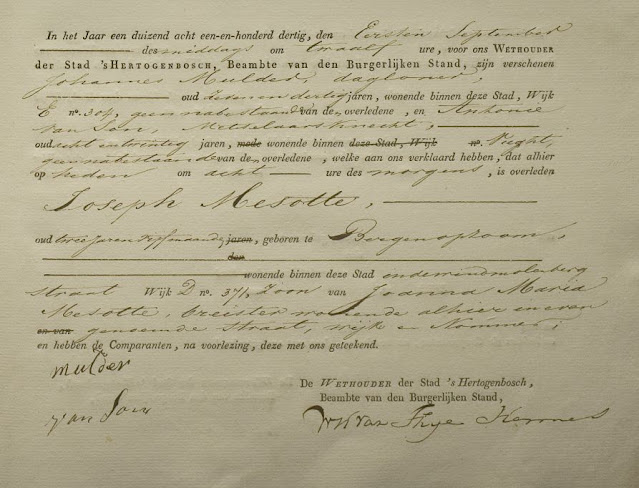 In het Jaar een duizend acht een-en-honderd dertig, den Eersten September
des middags om twaalf ure, voor ons WETHOUDER
der Stad 'sHERTOGENBOSCH, Beambte van den Burgerlijken Stand, zijn verschenen
Johannes Mulder, dagloner,
oud zevenendertig jaren, wonende binnen deze Stad, Wijk
E no. 304, geen nabestaande van de overledene, en Antonie
van Son, Metselaarsknecht,
oud acht en twintig jaren, mede wonende binnen deze Stad, Wijk no. Vught,
geen nabestaande van de overledene, welke aan ons verklaard hebben, dat alhier
op heden om acht ure des morgens, is overleden
Joseph Mesotte,
oud twee jaren vijf maanden jaren, geboren te Bergen op Zoom,
den
wonende binnen deze Stad onder windmolenberg
straat Wijk D no. 37½ Zoon van Joanna Maria
Mesotte, breister wonende alhier in even
en van genoemde straat, wijk en Nommer;
en hebben de Comparanten, na voorlezing, deze met ons geteekend.
mulder
van Son
De WETHOUDER der Stad 's Hertogenbosch,
Beambte van den Burgerlijken Stand,
van Thye Hannes